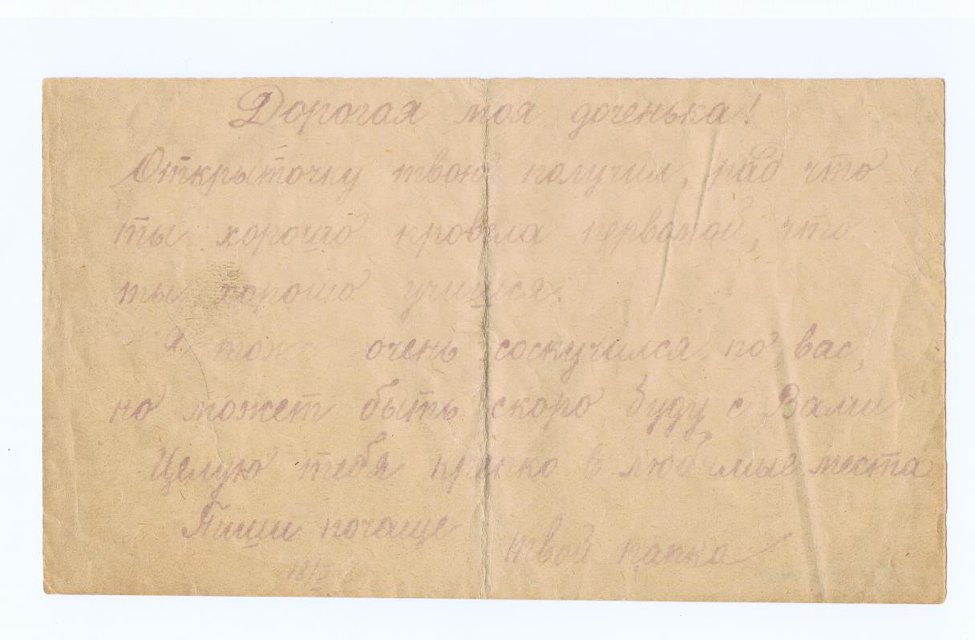 Дорогая моя доченька!
Открыточку твою получил, рад что
ты хорошо провела первомай, что
ты хорошо учишься.
Я тоже очень соскучился по вас,
но может быть скоро буду с Вами
Целую тебя крепко в любимые места
Пиши почаще твой папка